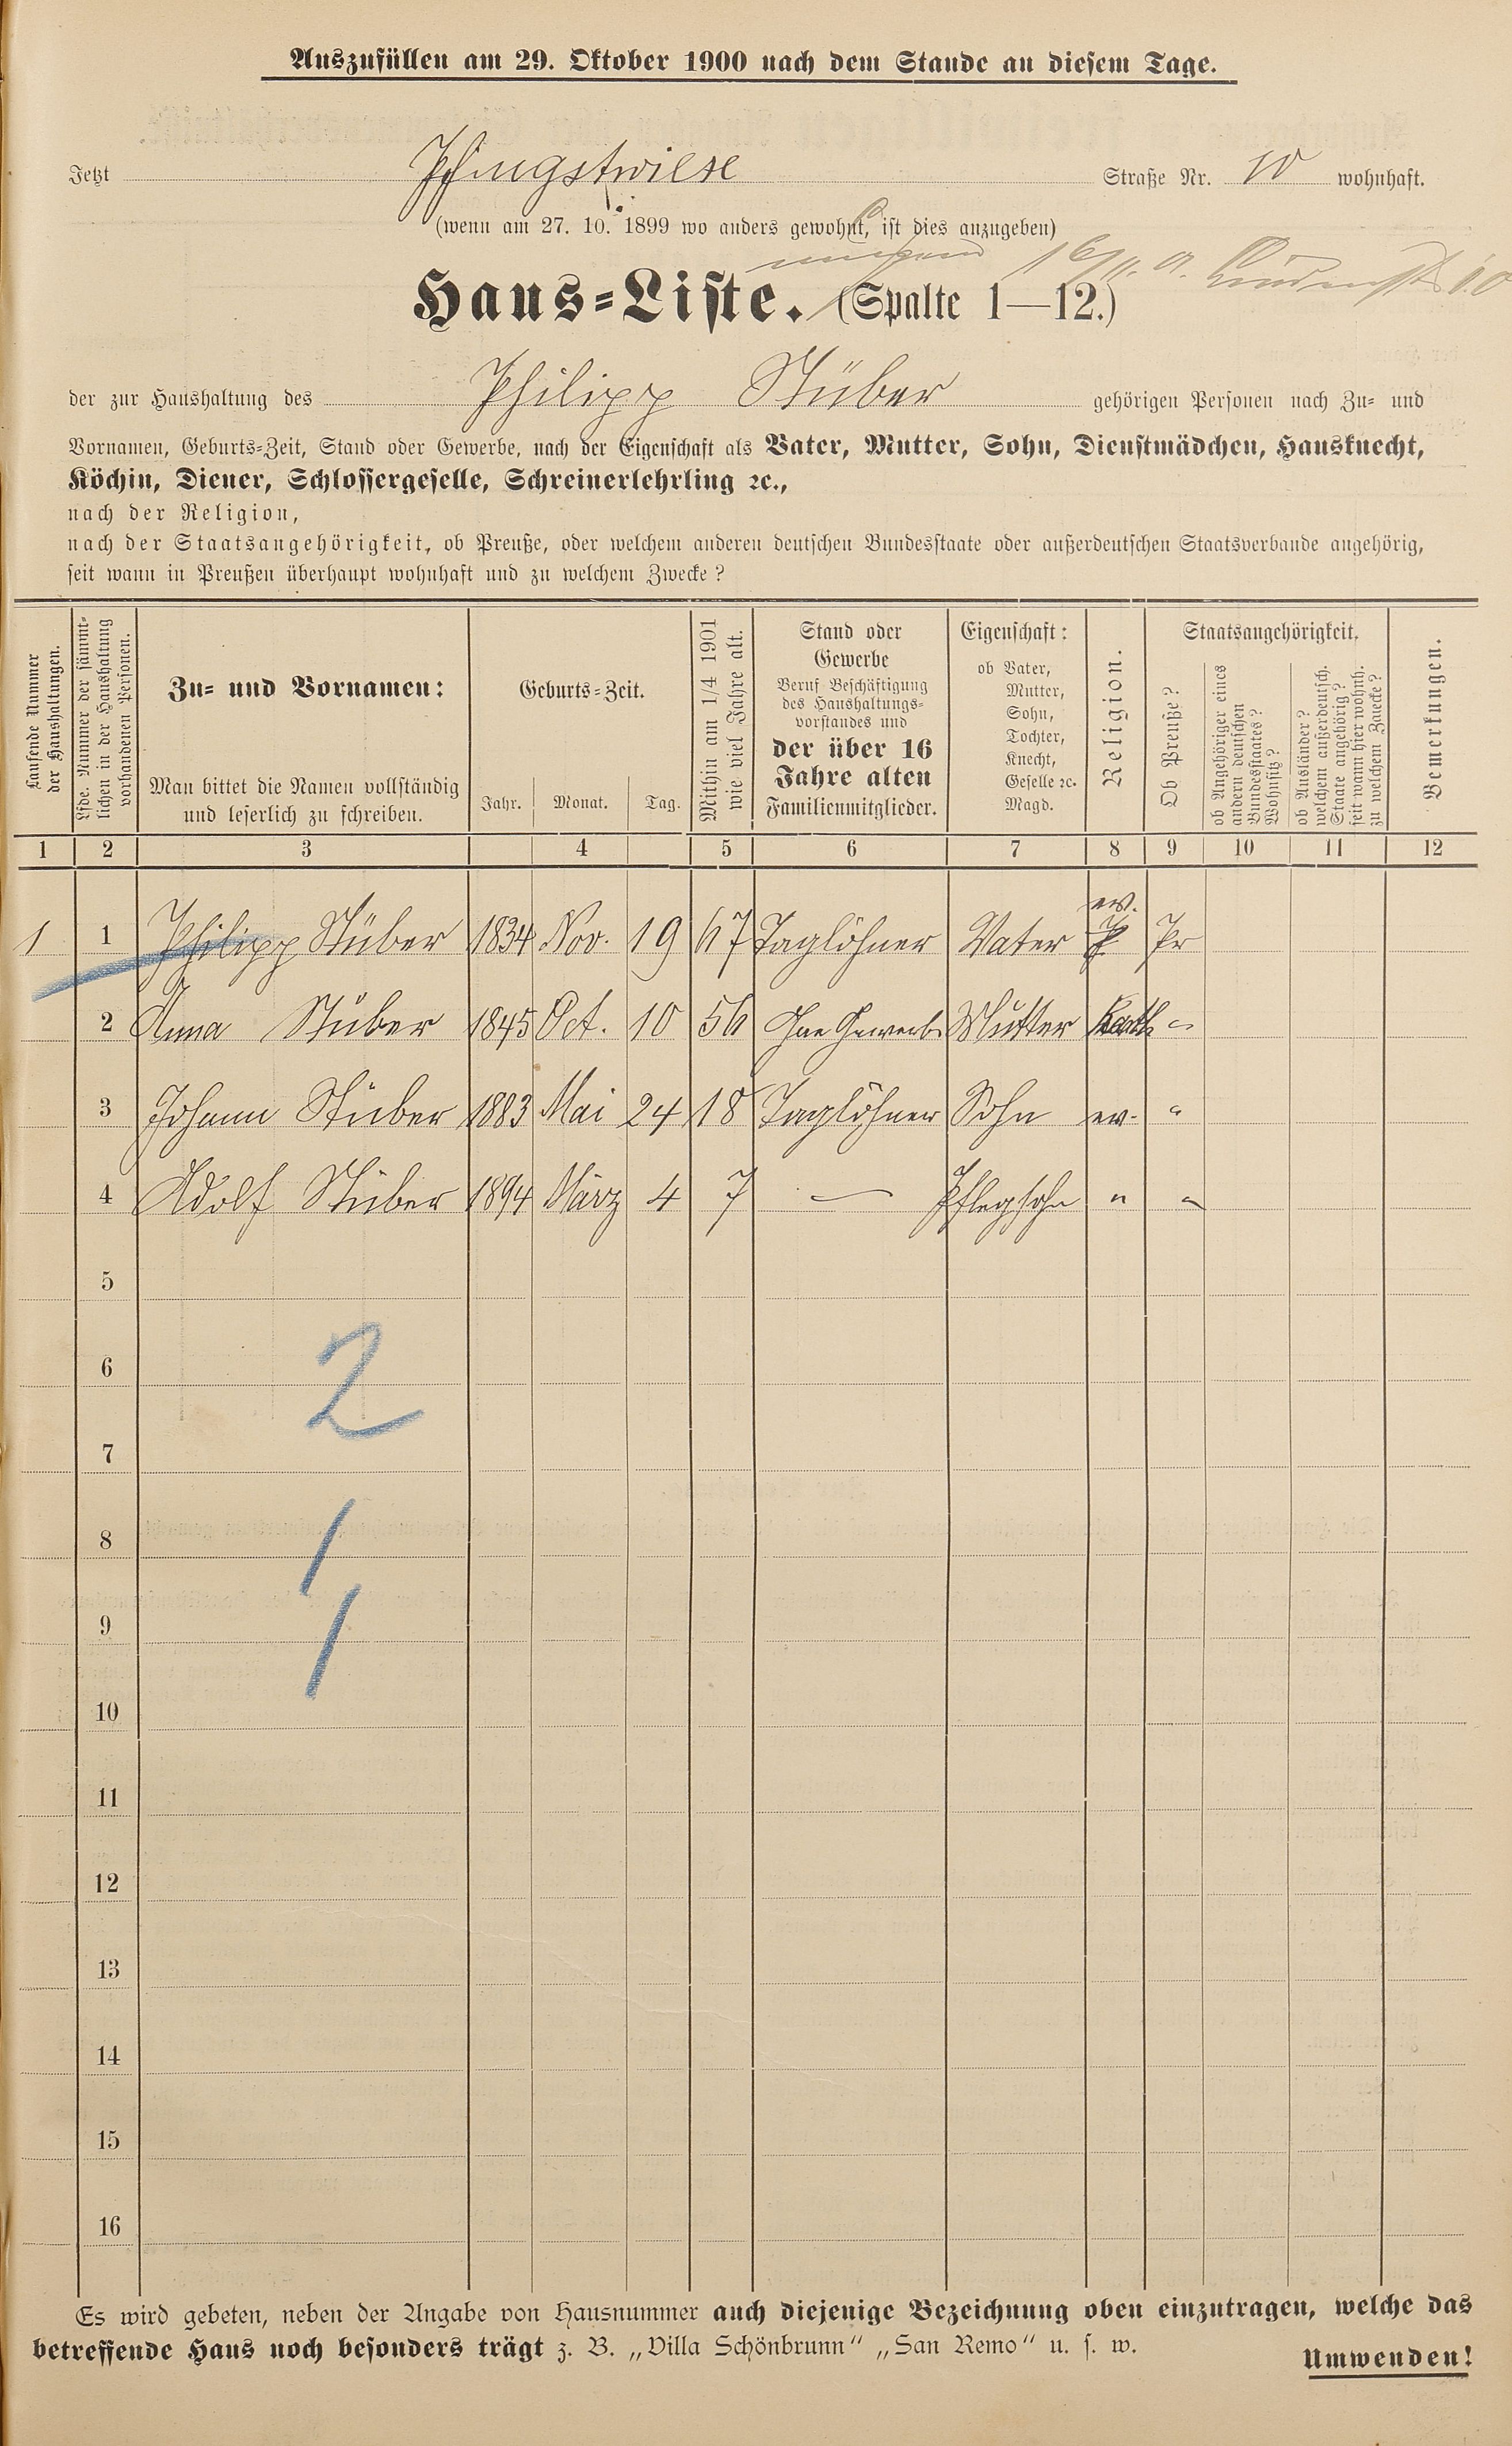 Auszufüllen am 29. Oktober 1900 nach dem Stande an diesem Tage.
Jetzt Pfingstwiese Straße Nr. 10 wohnhaft.
(wenn am 27. 10. 1899 wo anders gewohnt, ist dies anzugeben)
Haus-Liste. (Spalte 1—12.)
der zur Haushaltung des Philipp Stüber gehörigen Personen nach Zu- und
Vornamen, Geburts-Zeit, Stand oder Gewerbe, nach der Eigenschaft als Vater, Mutter, Sohn, Dienstmädchen, Hausknecht,
Köchin, Diener, Schlossergeselle, Schreinerlehrling ꝛc.,
nach der Religion,
nach der Staatsangehörigkeit, ob Preuße, oder welchem anderen deutschen Bundesstaate oder außerdeutschen Staatsverbande angehörig,
seit wann in Preußen überhaupt wohnhaft und zu welchem Zwecke?
Laufende Nummer
der Haushaltungen.
Lfde. Nummer der sämmt-
lichen in der Haushaltung
vorhandenen Personen.
Zu- und Vornamen:
Man bittet die Namen vollständig
und leserlich zu schreiben.
Geburts-Zeit.
Jahr. Monat. Tag.
Mithin am 1/4 1901
wie viel Jahre alt.
Stand oder
Gewerbe
Beruf Beschäftigung
des Haushaltungs-
vorstandes und
der über 16
Jahre alten
Familienmitglieder.
Eigenschaft:
ob Vater,
Mutter,
Sohn,
Tochter,
Knecht,
Geselle ꝛc.
Magd.
Religion.
Staatsangehörigkeit.
Ob Preuße?
ob Angehöriger eines
andern deutschen
Bundesstaates?
Wohnsitz?
ob Ausländer?
welchem außerdeutsch.
Staate angehörig?
seit wann hier wohnh.
zu welchem Zwecke?
Bemerkungen.
1 2 3 4 5 6 7 8 9 10 11 12
1 1 Philipp Stüber 1834 Nov. 19 67 Taglöhner Vater ev. Pr
2 Anna Stüber 1845 Oct. 10 56 Mutter Kath "
3 Johann Stüber 1883 Mai 24 18 Taglöhner Sohn ev. "
4 Adolf Stüber 1894 März 4 7 — Pflegsohn " "
5
6
2
7
8
1
9
1
10
11
12
13
14
15
16
Es wird gebeten, neben der Angabe von Hausnummer auch diejenige Bezeichnung oben einzutragen, welche das
betreffende Haus noch besonders trägt z. B. „Villa Schönbrunn“ „San Remo“ u. s. w.
Umwenden!